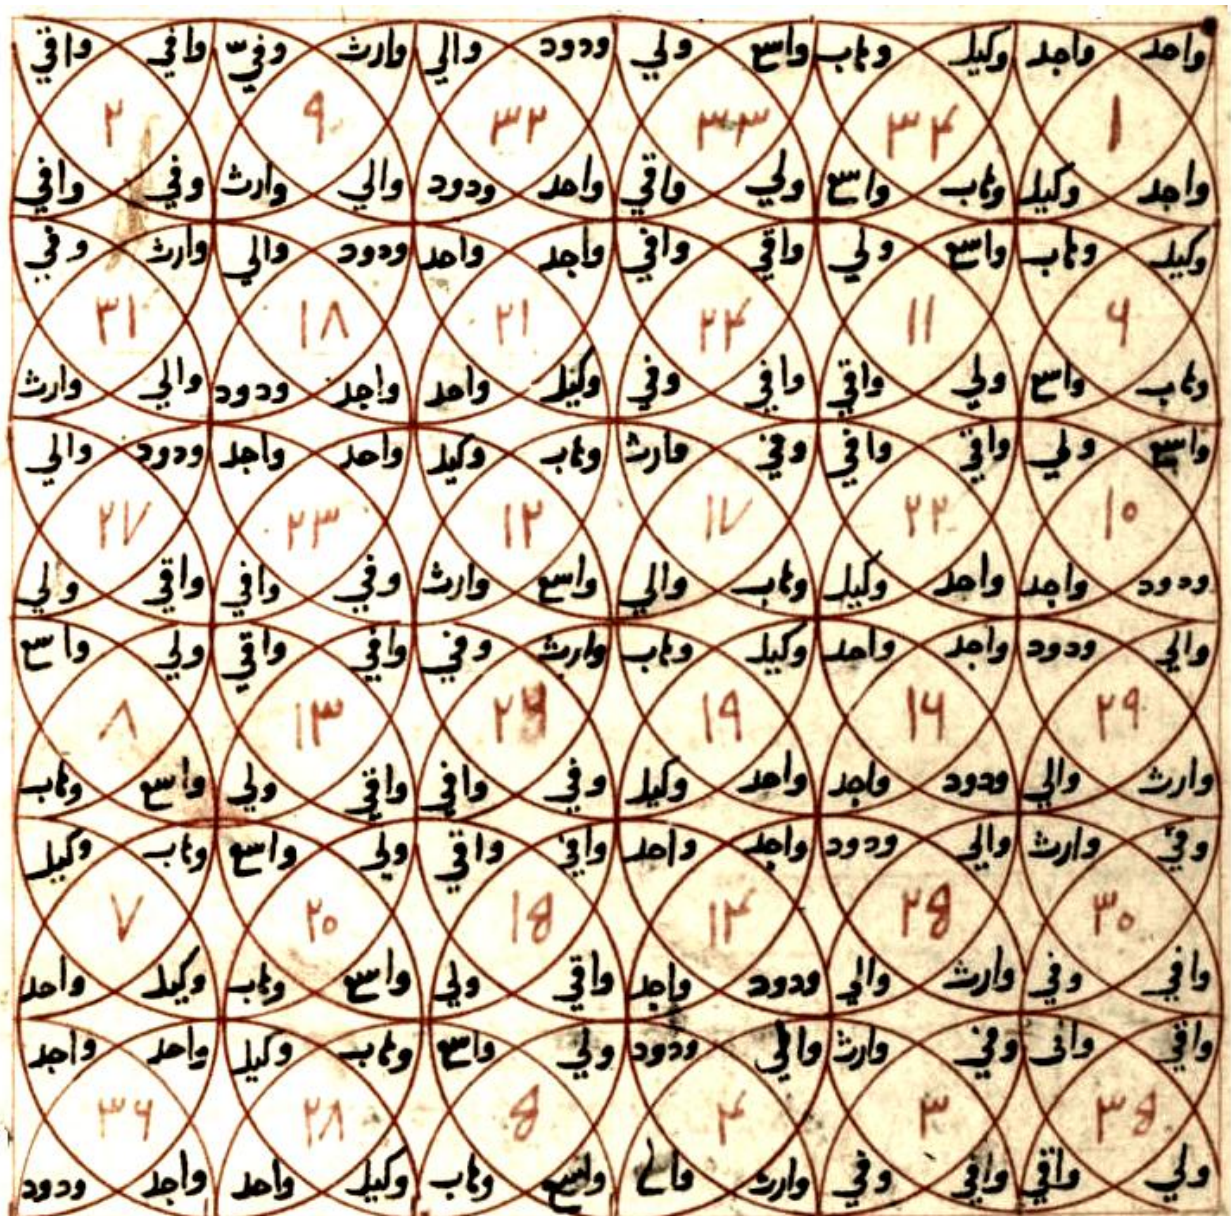 واحد واجد وكيل وهاب واسع ولي ودود والي وارث وفيّ وافي واقي
۱ ۳۴ ۳۳ ۳۲ ۹ ۲
واجد وكيل وهاب واسع ولي واقي واحد ودود والي وارث وفي وافي
وكيل وهاب واسع ولي واقي وافي واجد واحد ودود والي وارث وفي
۶ ۱۱ ۲۴ ۲۱ ۱۸ ۳۱
وهاب واسع ولي واقي وافي وفي وكيل واحد واجد ودود والي وارث
واسع ولي واقي وافي وفي وارث وهاب وكيل واحد واجد ودود والي
۱۰ ۲۲ ۱۷ ۱۲ ۲۳ ۲۷
ودود واجد واحد وكيل وهاب والي واسع وارث وفي وافي واقي ولي
والي ودود واجد واحد وكيل وهاب وارث وفي وافي واقي ولي واسع
۲۹ ۱۶ ۱۹ ۲۶ ۱۳ ۸
وارث والي ودود واجد واحد وكيل وفي وافي واقي ولي واسع وهاب
وفي وارث والي ودود واجد واحد وافي واقي ولي واسع وهاب وكيل
۳۰ ۲۵ ۱۴ ۱۵ ۲۰ ۷
وافي وفي وارث والي ودود واجد واقي ولي واسع وهاب وكيل واحد
واقي وافى وفي وارث والي ودود ولي واسع وهاب وكيل واحد واجد
۳۵ ۳ ۴ ۵ ۲۸ ۳۶
ولي واقي وافي وفي وارث والي واسع وهاب وكيل واحد واجد ودود